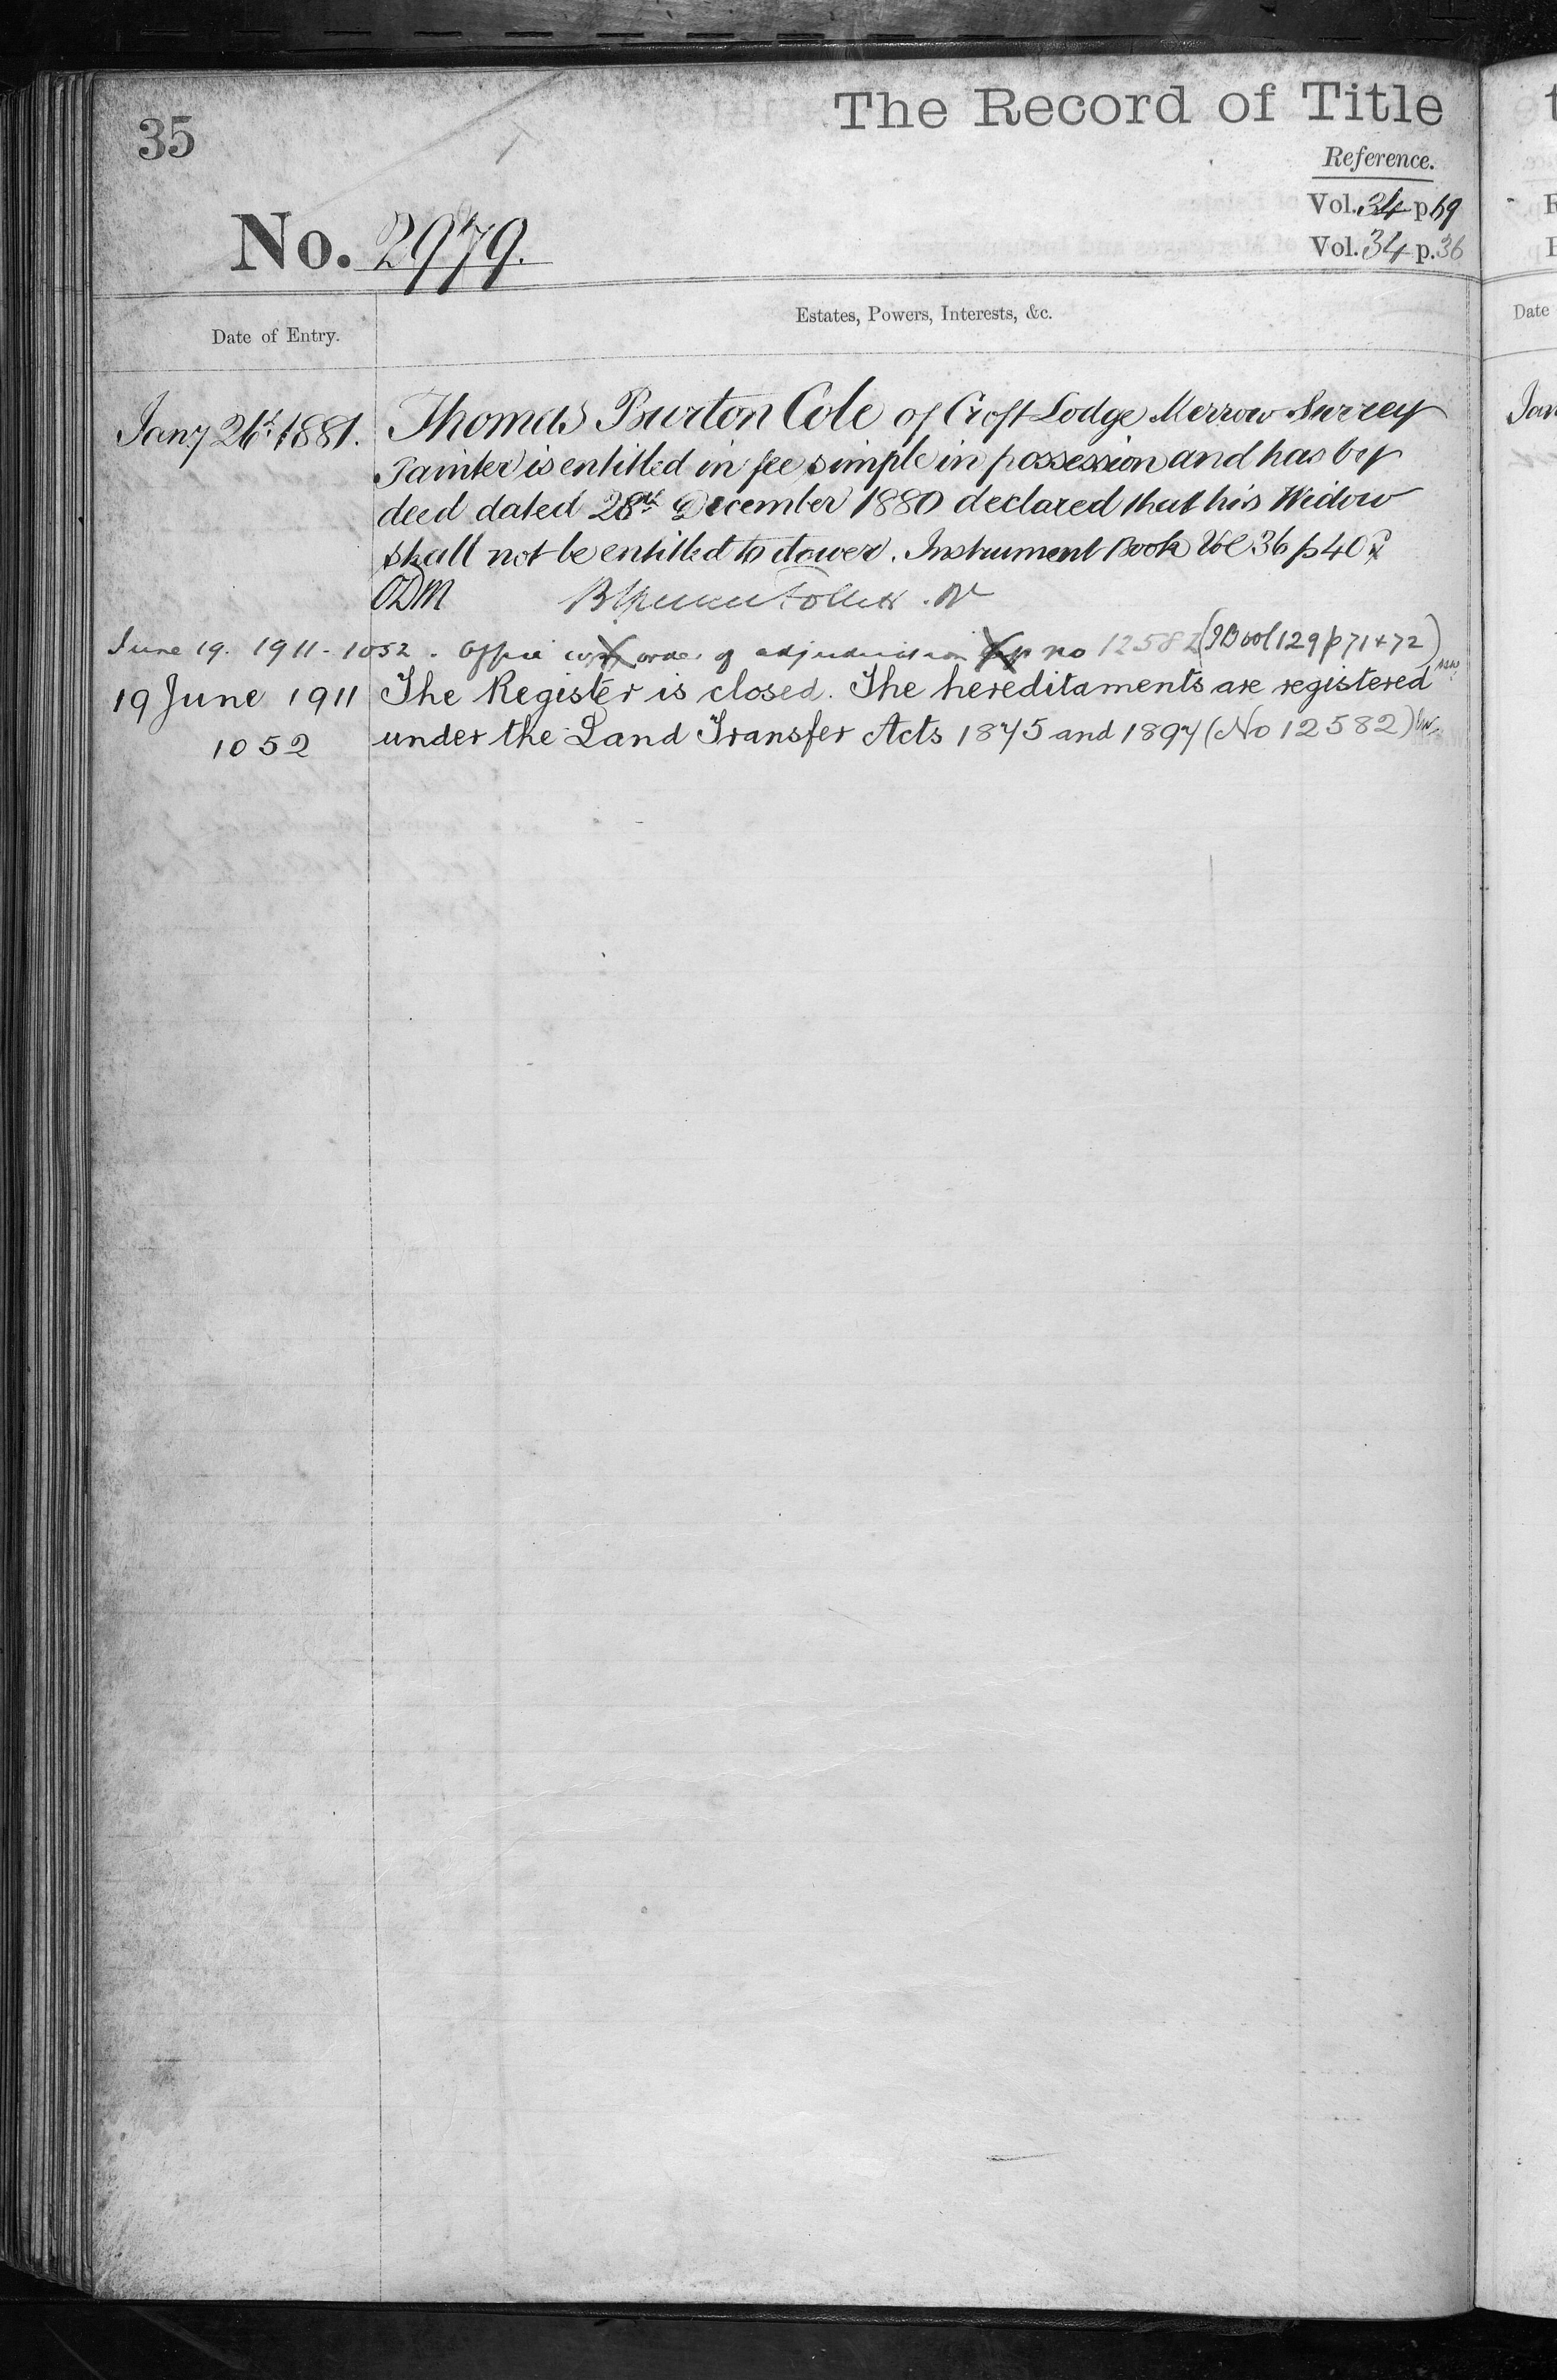 35
The Record of Title
Reference.
Vol. 34 p 69
Vol. 34 p. 36
No. 2979.
Date of Entry.
Estates, Powers, Interests, &c.
Jany 26th 1881. Thomas Burton Cole of Croft Lodge Merrow Surrey
Painter is entitled in fee simple in possession and has by
deed dated 28th December 1880 declared that his Widow
shall not be entitled to dower. Instrument Book Vol 36 p 40
ODM
June 19. 1911 - 1052. Office copy order of adjudication no 12582 (I Bool 129 p 71 + 72)
19 June 1911 The Register is closed. The hereditaments are registered
1052 under the Land Transfer Acts 1875 and 1897 (No 12582)
Date
Jan